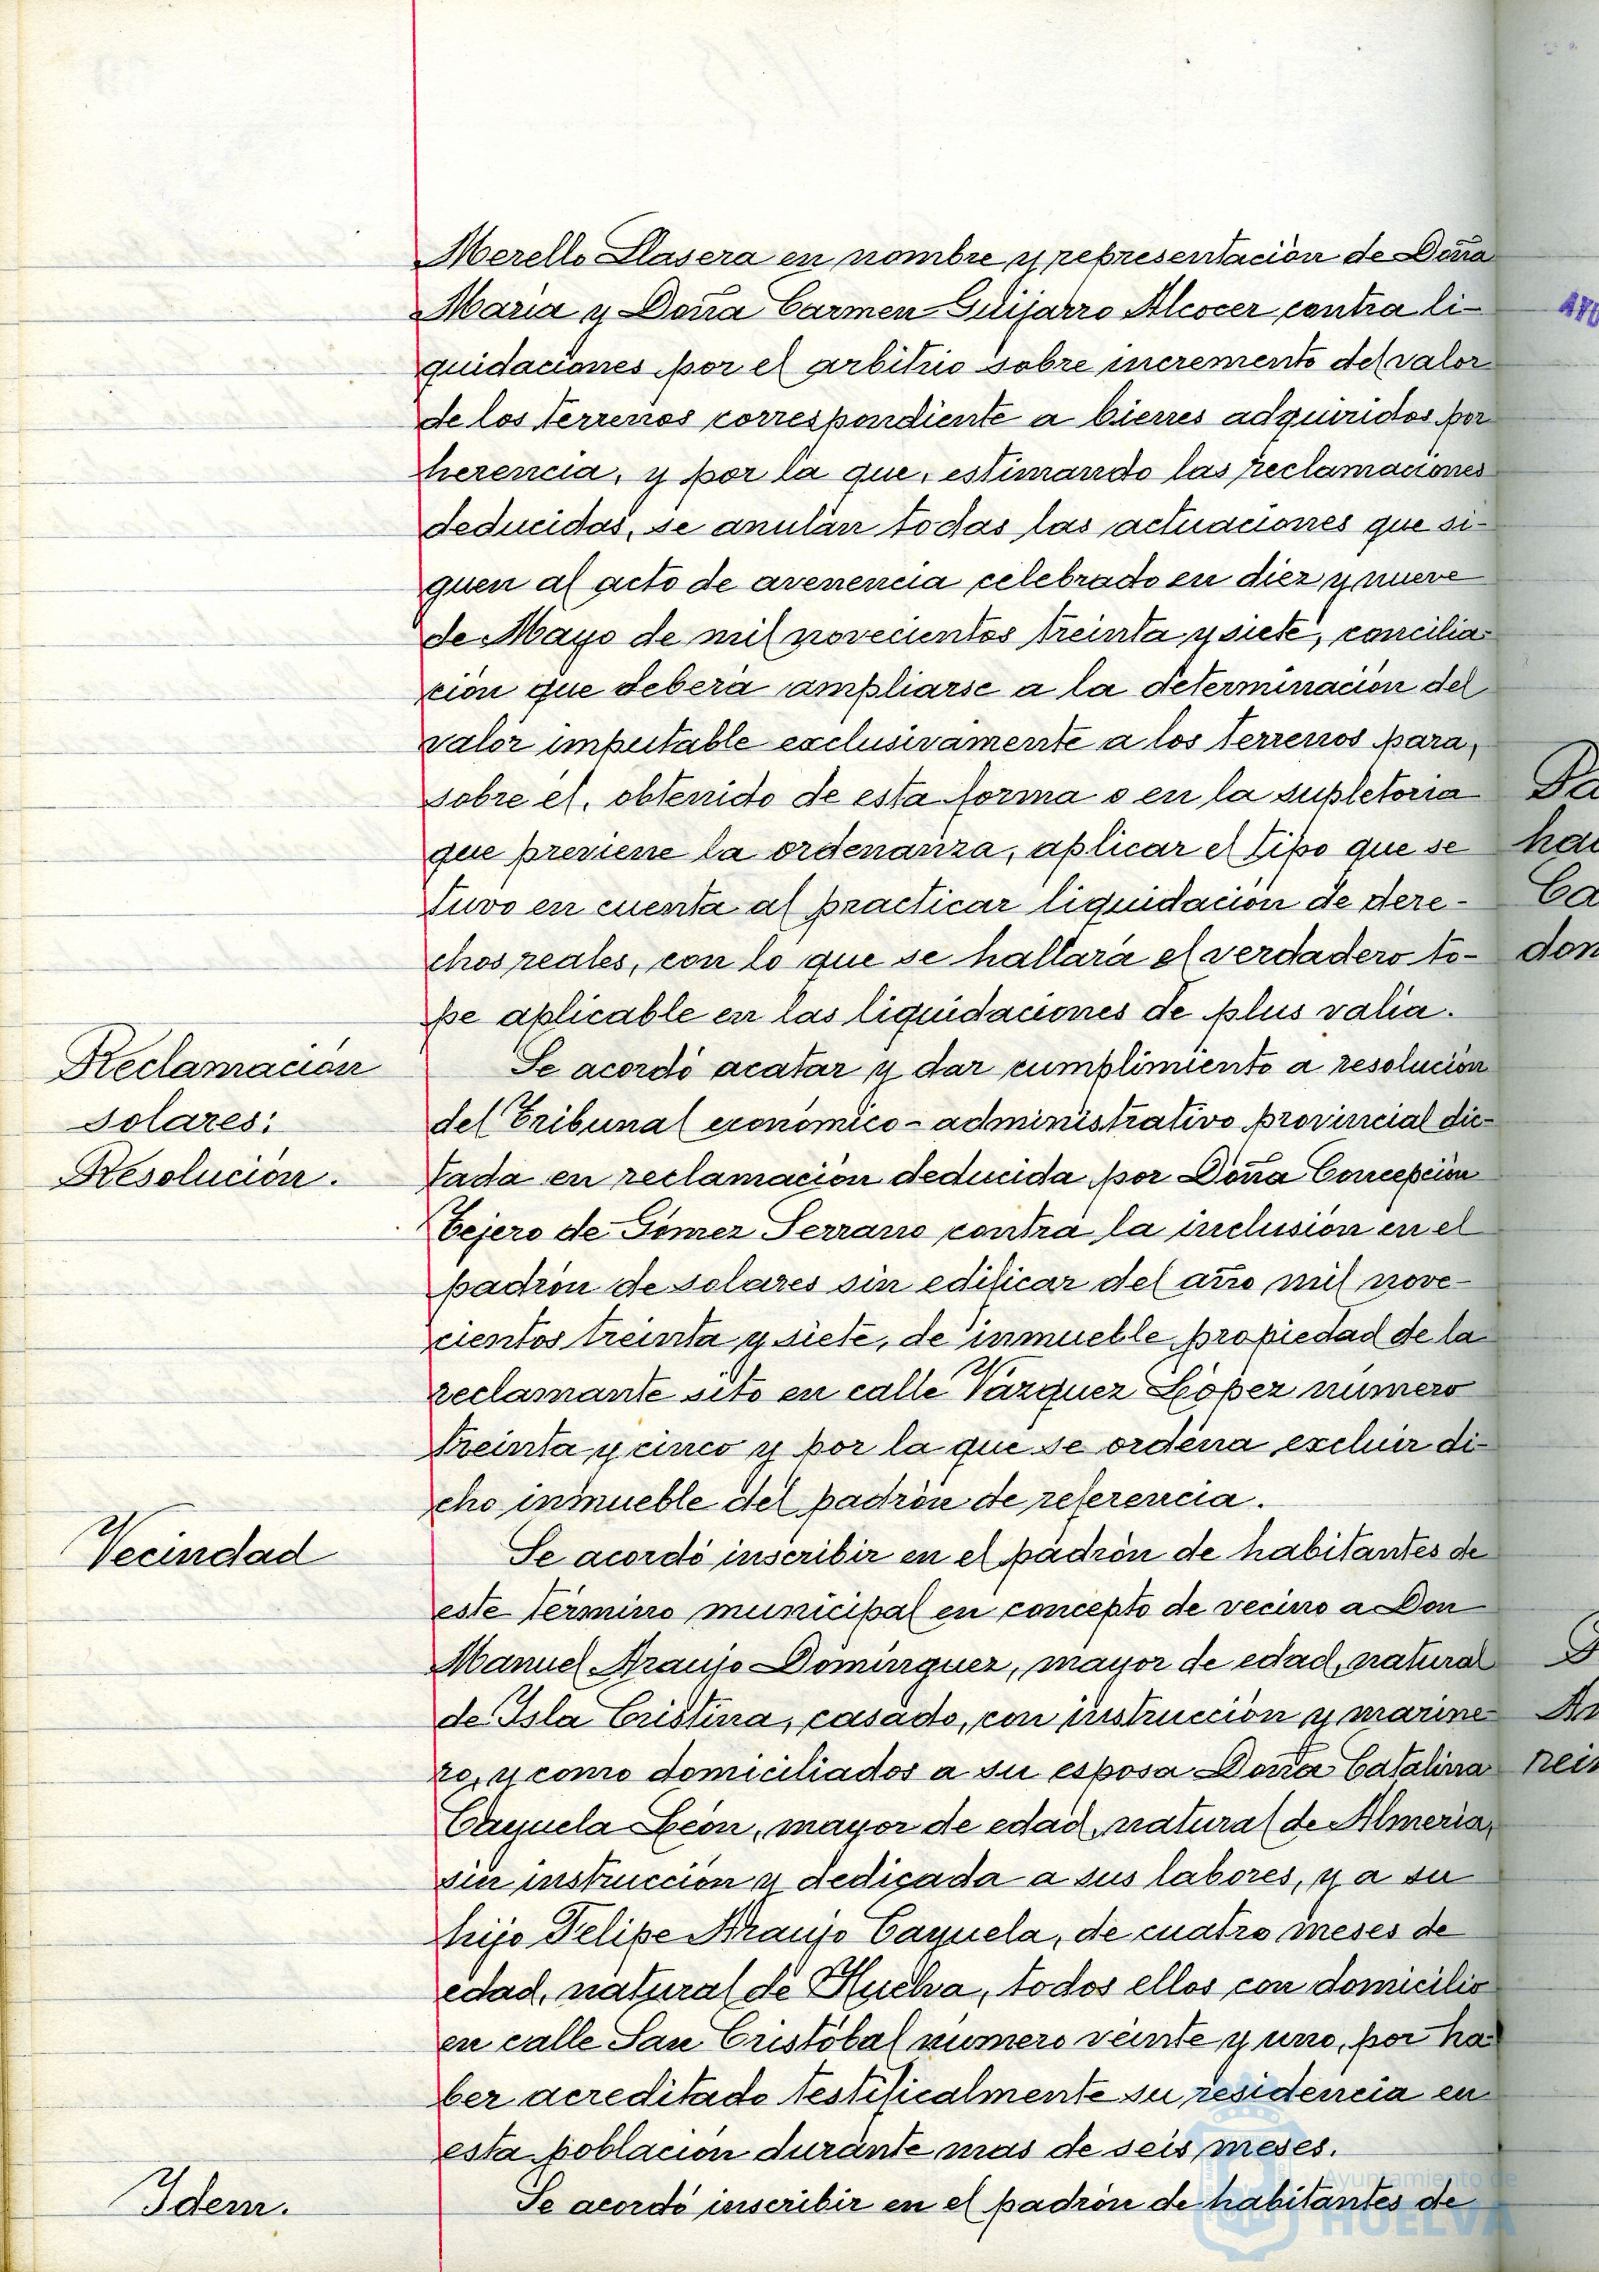 Merello Llasera en nombre y representación de Doña
Maria y Doña Carmen Guijarro Alcocer contra li-
quidaciones por el arbitrio sobre incremento del valor
de los terrenos correspondiente a bienes adquiridos por
herencia, y por la que, estimando las reclamaciones
deducidas, se anulan todas las actuaciones que si-
guen al acto de avenencia celebrado en diez y nueve
de Mayo de mil novecientos treinta y siete, concilia-
ción que deberá ampliarse a la determinación del
valor imputable exclusivamente a los terrenos para,
sobre él, obtenido de esta forma o en la supletoria
que previene la ordenanza, aplicar el tipo que se
tuvo en cuenta al practicar liquidación de dere-
chos reales, con lo que se hallará el verdadero to-
pe aplicable en las liquidaciones de plus valia.
Reclamación
solares:
Resolución.
Se acordó acatar y dar cumplimiento a resolución
del Tribunal económico-administrativo provincial dic-
tada en reclamación deducida por Doña Concepción
Tejero de Gómez Serrano contra la inclusión en el
padrón de solares sin edificar del año mil nove-
cientos treinta y siete, de inmueble propiedad de la
reclamante sito en calle Vázquez López número
treinta y cinco y por la que se ordena excluir di-
cho inmueble del padrón de referencia.
Vecindad
Se acordó inscribir en el padrón de habitantes de
este término municipal en concepto de vecino a Don
Manuel Araujo Domínguez, mayor de edad, natural
de Isla Cristina, casado, con instrucción y marine-
ro, y como domiciliados a su esposa Doña Catalina
Cayuela León, mayor de edad, natural de Almeria,
sin instrucción y dedicada a sus labores, y a su
hijo Felipe Araujo Cayuela, de cuatro meses de
edad, natural de Huelva, todos ellos con domicilio
en calle San Cristóbal número veinte y uno, por ha-
ber acreditado testificalmente su residencia en
esta población durante mas de seis meses.
Idem.
Se acordó inscribir en el padrón de habitantes de
Ayuntamiento de
HUELVA
Pa
ha
Ca
don